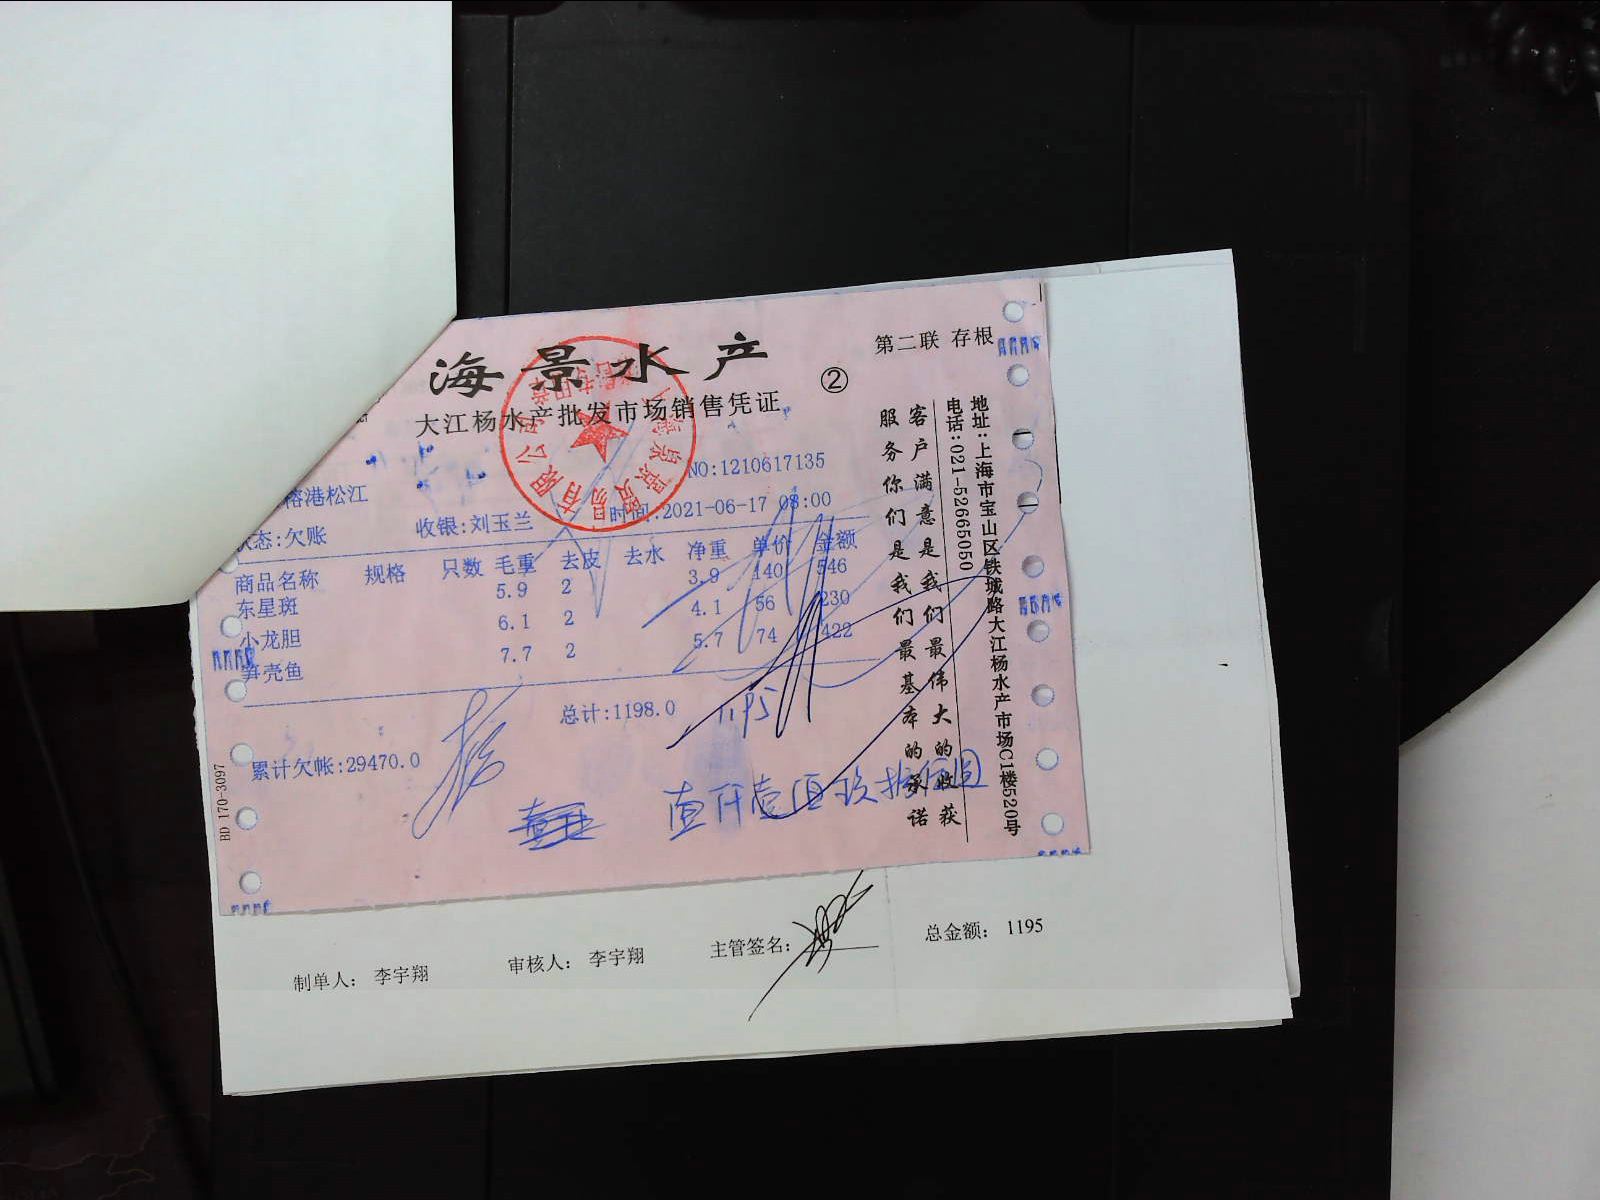 海景水产
第二联 存根
②
大江杨水产批发市场销售凭证
NO:1210617135
榕港松江
状态:欠账 收银:刘玉兰 时间:2021-06-17 08:00
商品名称 规格 只数 毛重 去皮 去水 净重 单价 金额
东星斑 5.9 2 3.9 140 546
小龙胆 6.1 2 4.1 56 230
笋壳鱼 7.7 2 5.7 74 422
总计:1198.0 1195
累计欠帐:29470.0
壹仟壹佰玖拾伍圆
客户满意是我们最伟大的收获
服务你们是我们最基本的承诺
地址:上海市宝山区铁城路大江杨水产市场C1楼520号
电话:021-52665050
BD 170-3097
制单人: 李宇翔 审核人: 李宇翔 主管签名: 总金额: 1195